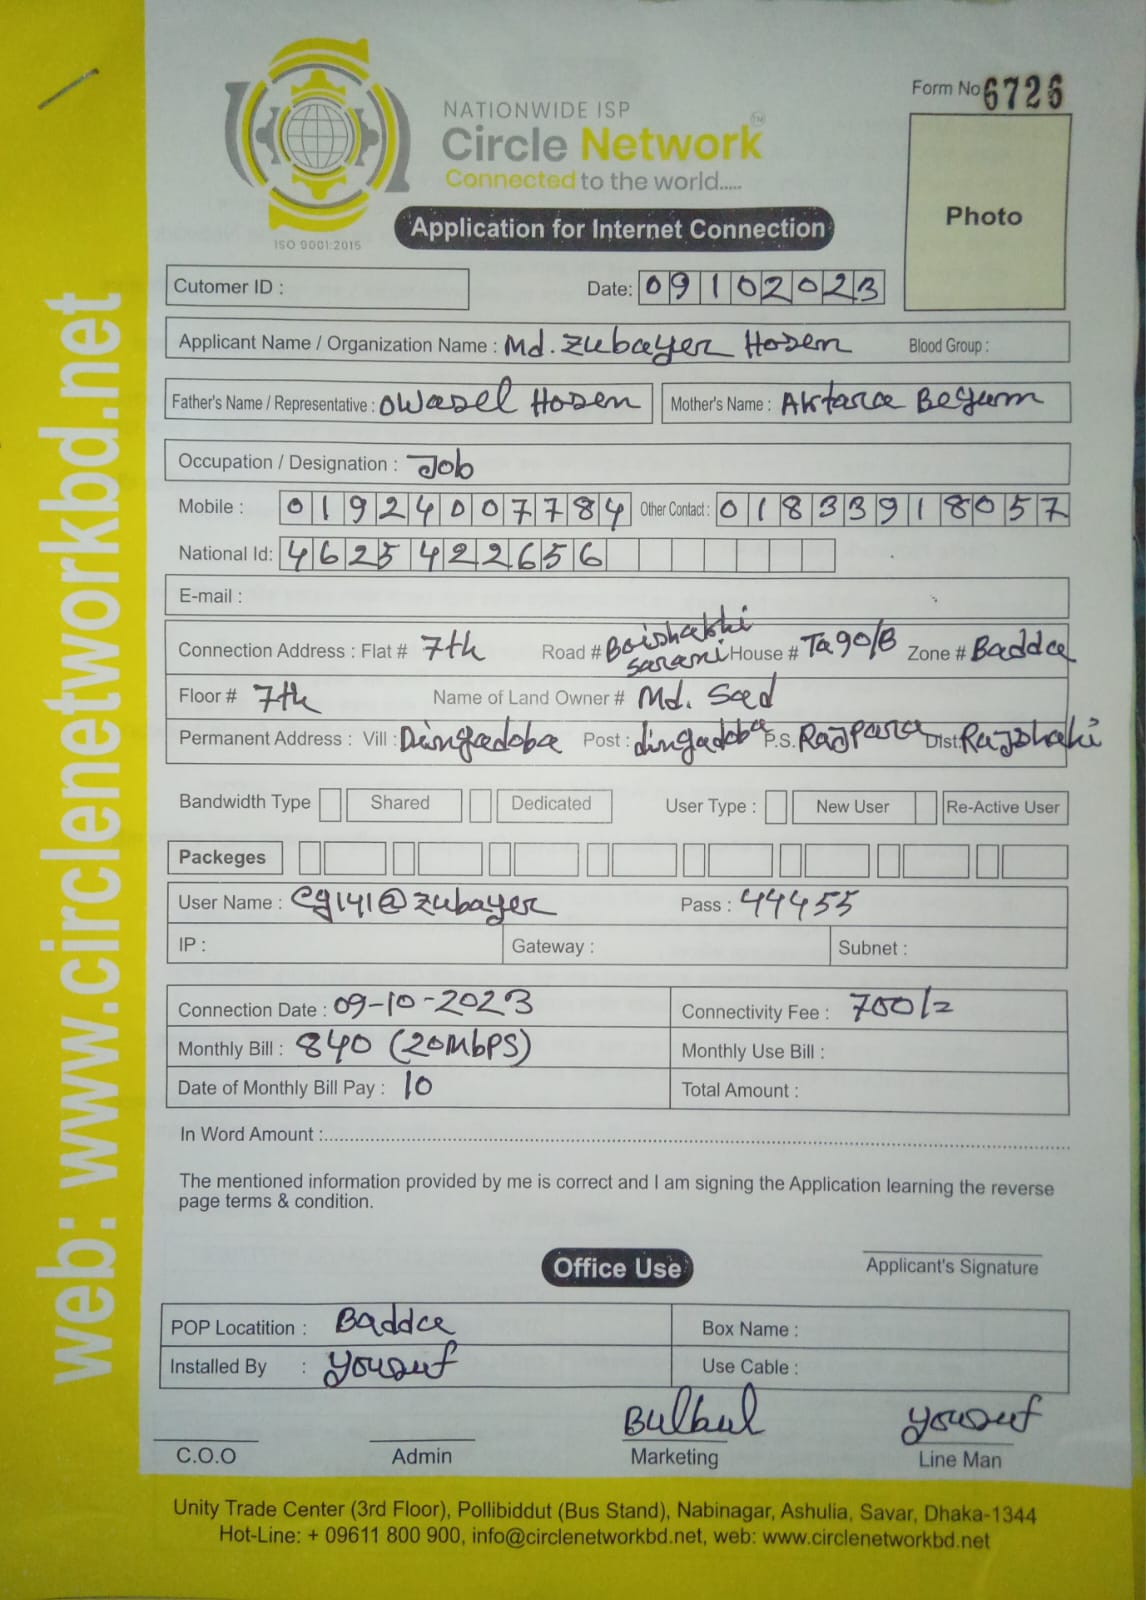 web: www.circlenetworkbd.net
Form No 6726
NATIONWIDE ISP
Circle Network TM
Connected to the world.....
ISO 9001:2015
Application for Internet Connection
Photo
Cutomer ID :
Date: 09102023
Applicant Name / Organization Name : Md. Zubayer Hosen Blood Group :
Father's Name / Representative : Owasel Hosen Mother's Name : Aktara Begum
Occupation / Designation : Job
Mobile : 01924007784 Other Contact : 01833918057
National Id: 4625422656
E-mail :
Connection Address : Flat # 7th Road # Boishakhi Sarani House # Ta90/B Zone # Badda
Floor # 7th Name of Land Owner # Md. Saed
Permanent Address : Vill : Dingadoba Post : dingadoba P.S. Rajpara Dist. Rajshahi
Bandwidth Type Shared Dedicated User Type : New User Re-Active User
Packeges
User Name : cg141@zubayer Pass : 44455
IP : Gateway : Subnet :
Connection Date : 09-10-2023 Connectivity Fee : 700/=
Monthly Bill : 840 (20Mbps) Monthly Use Bill :
Date of Monthly Bill Pay : 10 Total Amount :
In Word Amount :
The mentioned information provided by me is correct and I am signing the Application learning the reverse
page terms & condition.
Office Use
Applicant's Signature
POP Locatition : Badda Box Name :
Installed By : Yousuf Use Cable :
Bulbul Yousuf
C.O.O Admin Marketing Line Man
Unity Trade Center (3rd Floor), Pollibiddut (Bus Stand), Nabinagar, Ashulia, Savar, Dhaka-1344
Hot-Line: + 09611 800 900, info@circlenetworkbd.net, web: www.circlenetworkbd.net